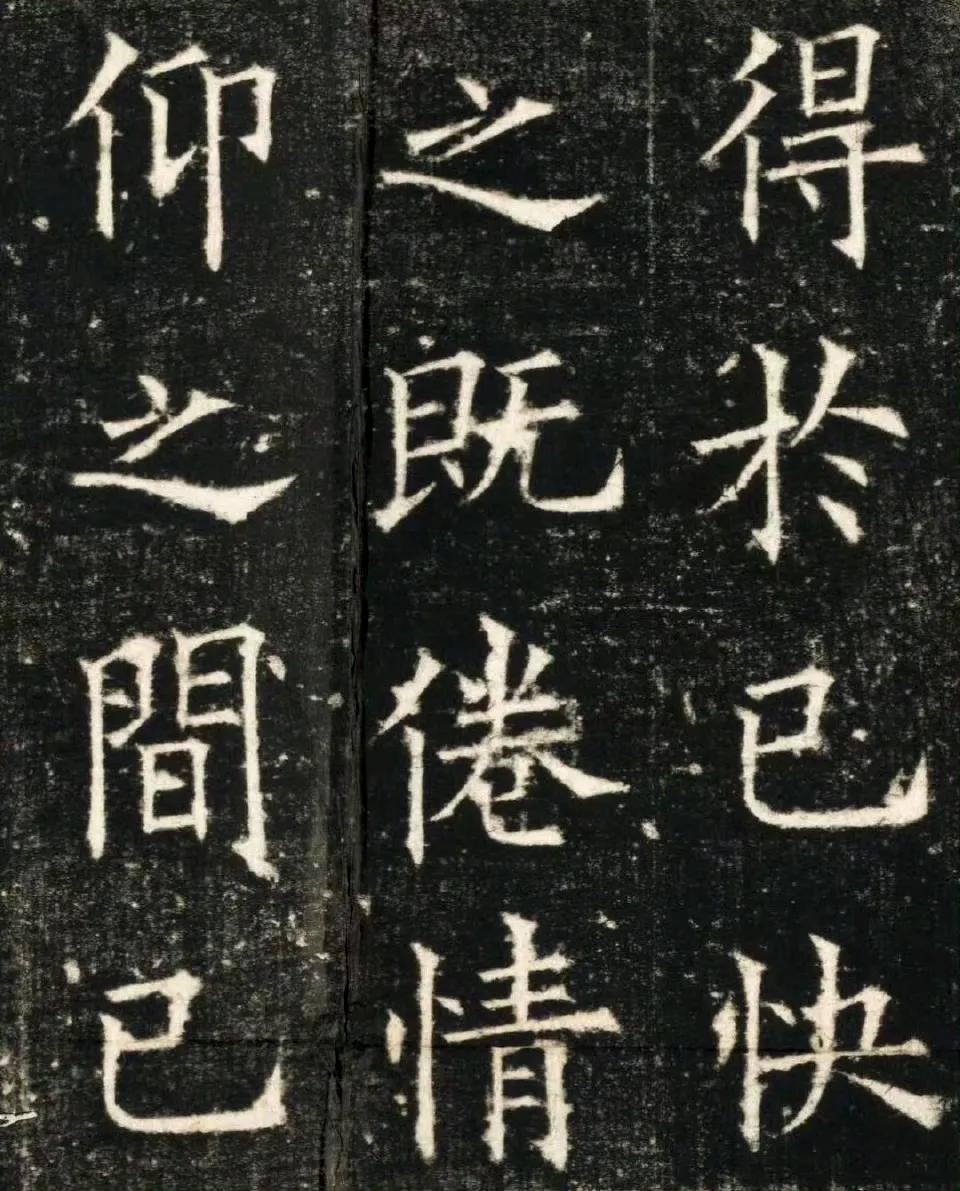 得於已快
之既倦情
仰之間已